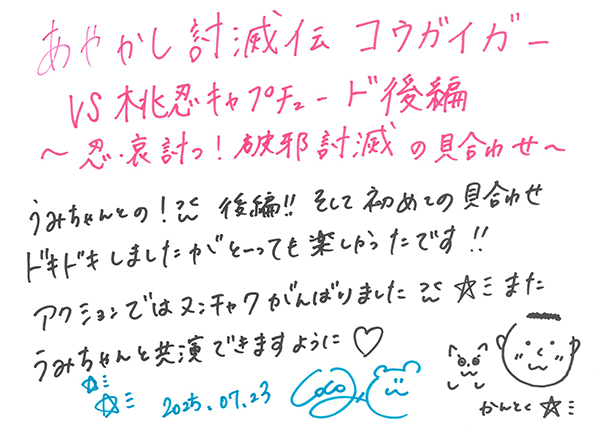 あやかし討滅伝 コウガイガー
VS 桃忍キャプチュード後編
～忍・哀討つ！破邪討滅の貝合わせ～
うみちゃんとの！ 後編!! そして初めての貝合わせ
ドキドキしましたがとーっても楽しかったです!!
アクションではヌンチャクがんばりました ☆ミ また
うみちゃんと共演できますように♡
かんとく ☆ミ
☆ミ ☆ミ 2025.07.23 Coco